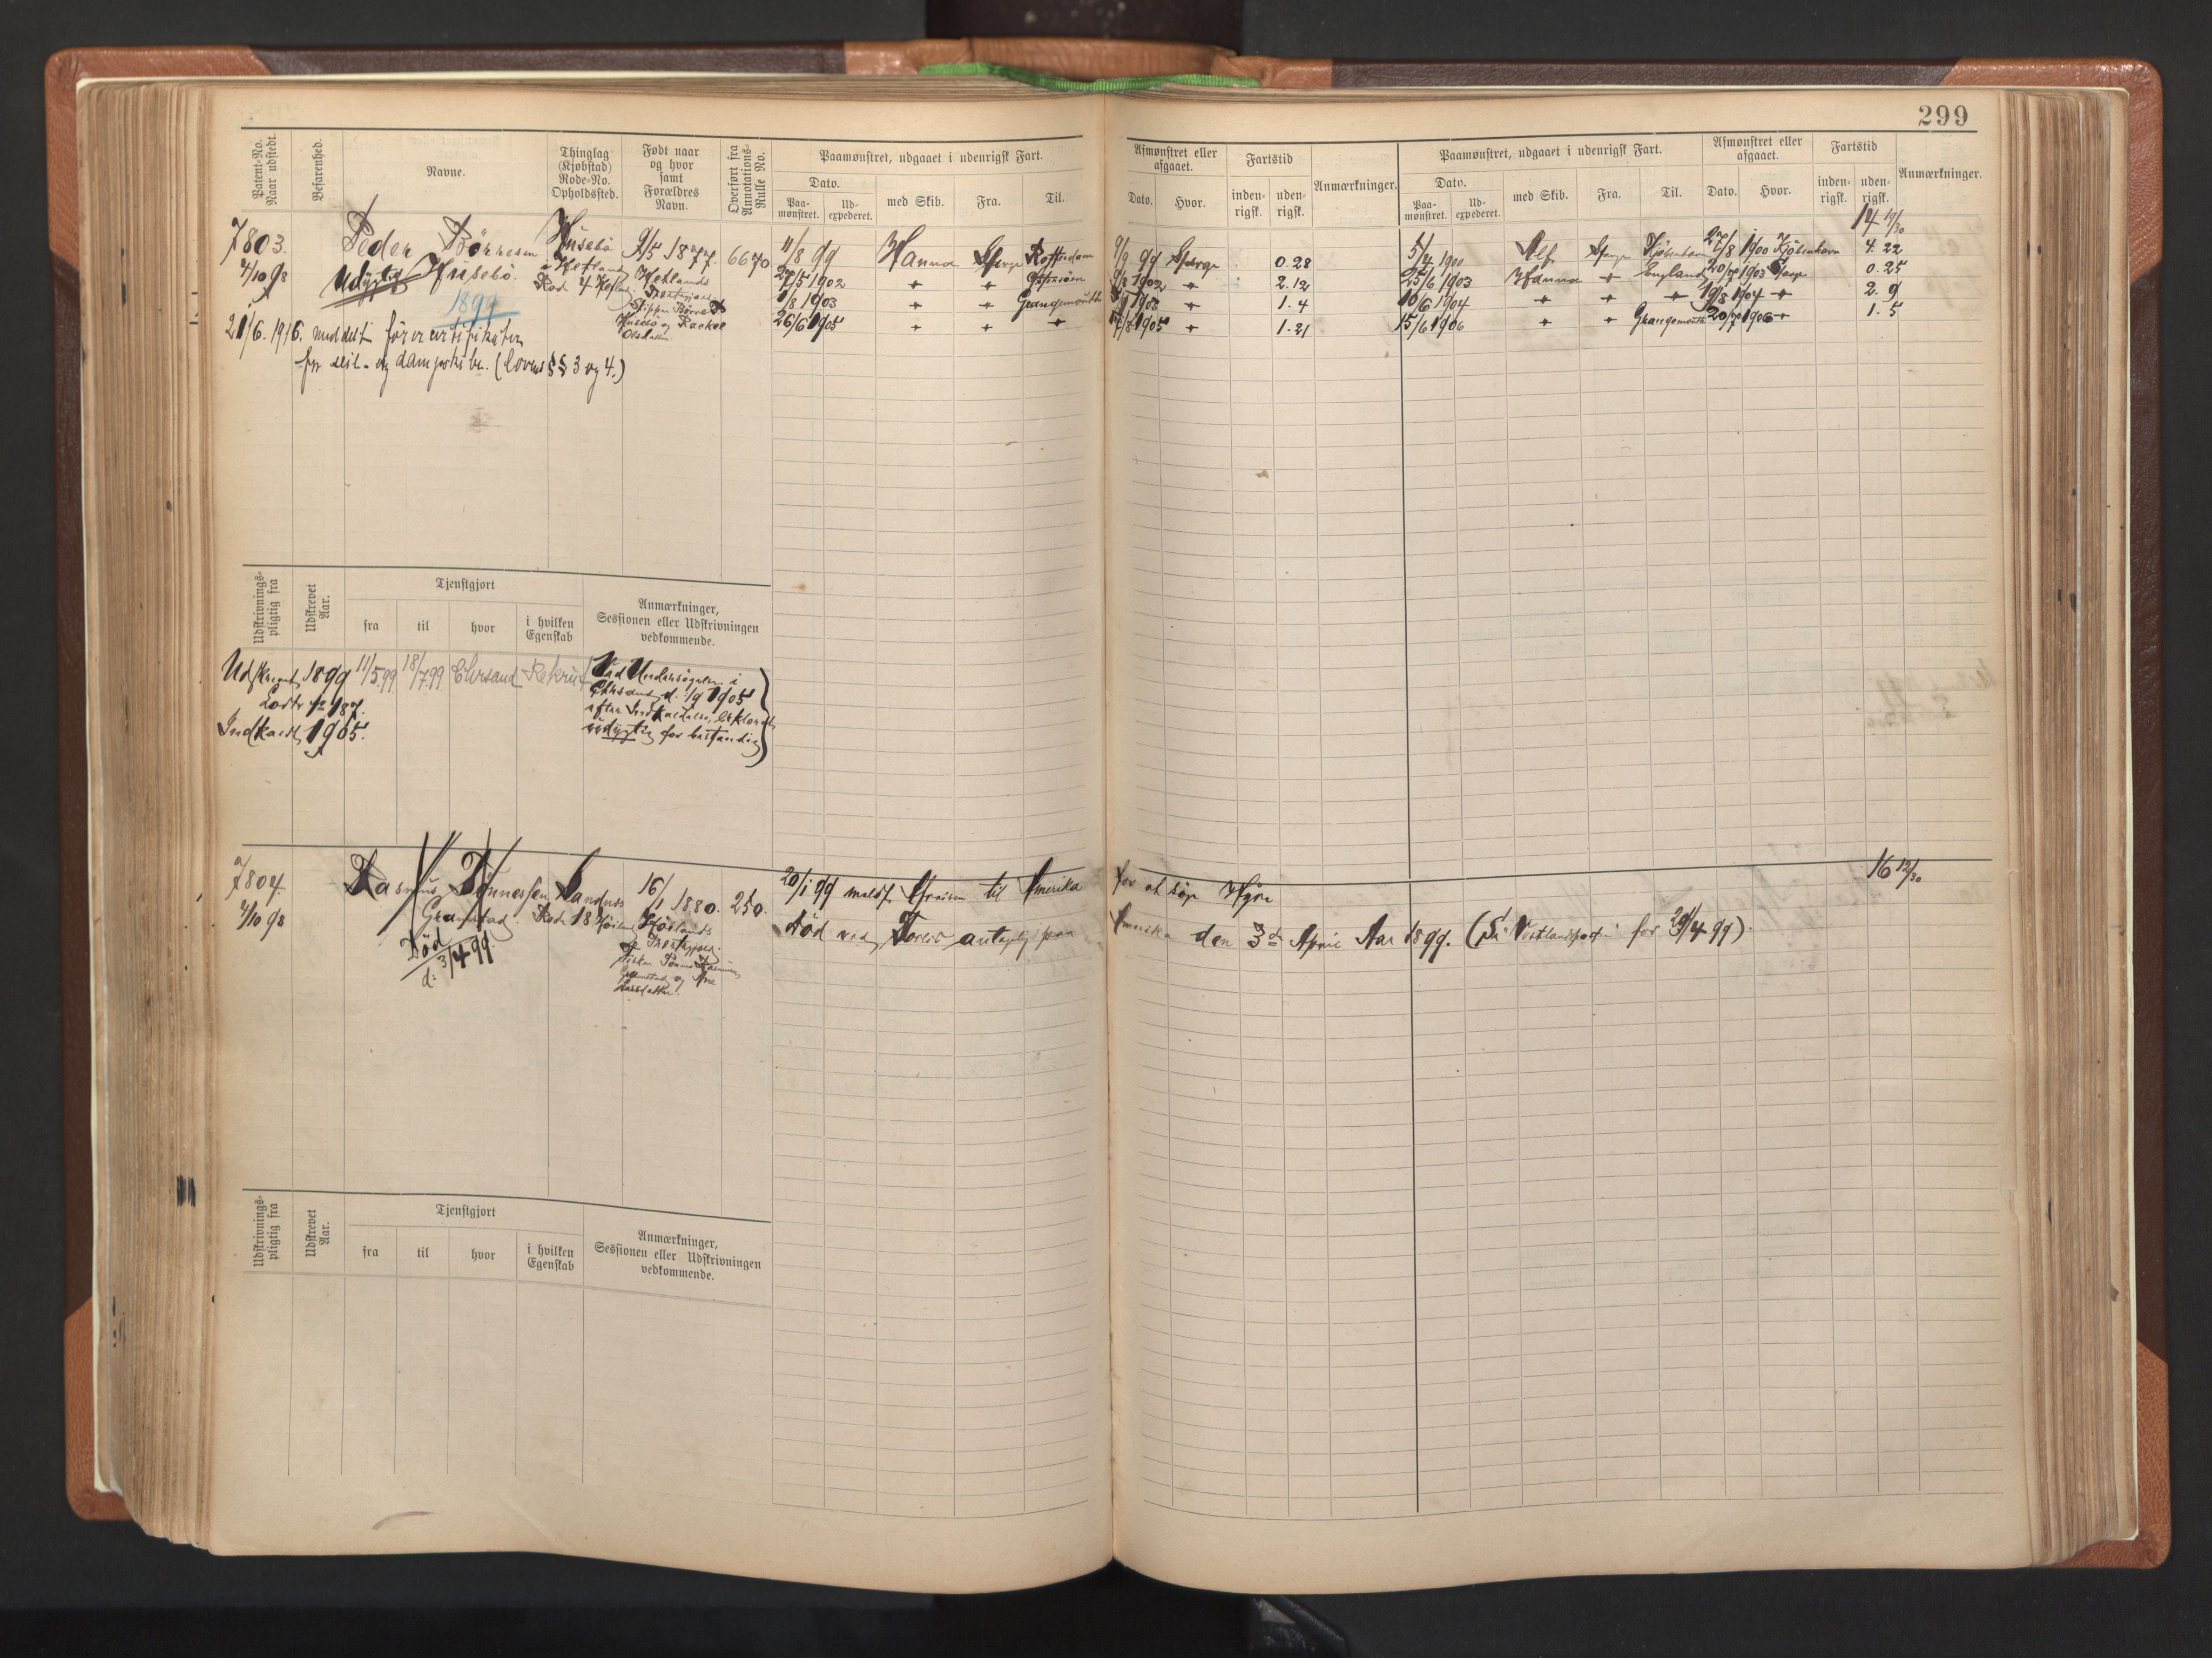 299
Patent-No. Naar udstedt.
Befarenhed.
Navne.
Thinglag (Kjøbstad) Rode-No. Opholdssted.
Født naar og hvor samt Forældres Navn.
Overført fra Annotations-Rulle No.
Paamønstret, udgaaet i udenrigsk Fart.
Dato.
Paa-mønstret.
Ud-expederet.
med Skib.
Fra.
Til.
Afmønstret eller afgaaet.
Dato.
Hvor.
Fartstid
inden-rigsk.
uden-rigsk.
Anmærkninger.
Paamønstret, udgaaet i udenrigsk Fart.
Dato.
Paa-mønstret.
Ud-expederet.
med Skib.
Fra.
Til.
Afmønstret eller afgaaet.
Dato.
Hvor.
Fartstid
inden-rigsk.
uden-rigsk.
Anmærkninger.
14 19/30
7803.
4/10 98
Peder Börresen
Husebö.
Udygtig
1899
Husebö
i Hetland
Rod. 4 Hetl.
9/5 1877.
Hetlands
Præstegjæld
Husebö og Rachel
Olsdatter
6670
11/8 99 Hanna Rotterdam
9/9 99 0.28
27/5 1902 " "
1902 " 2.12
1/8 1903 " " Grangemouth
1903 " 1.4
26/6 1905 " " "
1905 " 1.21
5/4 1900 Alf Kjöbenhavn 27/8 1900 Kjöbenhavn 4.22
25/6 1903 Hanna " England 20/7 1903 0.25
10/6 1904 " " " 19/8 1904 " 2.9
15/6 1906 " " Grangemouth 20/7 1906 " 1.5
21/6. 1916. meddelt förercertifikater
for seil- og dampskibe. (lovens §§ 3 og 4.)
Udskrivnings-pligtig fra
Udskrevet Aar.
Tjenstgjort
fra
til
hvor
i hvilken Egenskab
Anmærkninger, Sessionen eller Udskrivningen vedkommende.
Udskrevet 1899 11/5 99 18/7 99 Chrsand Rekrut
Lodtr. No 187.
Indkaldt 1905.
Ved Undersögelse i
Chrsand d. 1/9 1905
efter Indkaldelse, erklæret
udygtig for bestandig
7804
4/10 98
Rasmus Tönnessen
Gramstad
Död
d. 3/4 99.
Sandnes
Rod. 18 Höiland
16/1 1880.
Höilands
Præstegjæld
Gramstad og Ane
Larsdatter.
250.
16 12/30
20/1 99 meldt Afreisen til Amerika for at söge Hyre
Död ved Forlis antagelig paa Amerika den 3de April Aar 1899. (Se "Vestlandsposten" for 29/4 99).
Udskrivnings-pligtig fra
Udskrevet Aar.
Tjenstgjort
fra
til
hvor
i hvilken Egenskab
Anmærkninger, Sessionen eller Udskrivningen vedkommende.